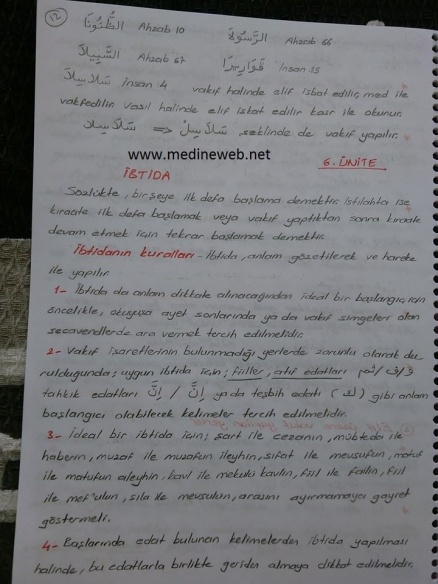 12 الظُّنُونَا Ahzab 10 الرَّسُولَا Ahzab 66
السَّبِيلَا Ahzab 67 قَوَارِيرَا İnsan 15
سَلَاسِلَا İnsan 4 vakıf halinde elif isbat edilir, med ile
vakfedilir. Vasıl halinde elif iskat edilir kasr ile okunur.
سَلَاسِلَا ⇒ سَلَاسِلْ şeklinde de vakıf yapılır.
www.medineweb.net
6. ÜNİTE
İBTİDA
Sözlükte, bir şeye ilk defa başlama demektir. Istılahta ise
kıraate ilk defa başlamak veya vakıf yaptıktan sonra kıraate
devam etmek için tekrar başlamak demektir.
İbtidanın kuralları - İbtida, anlam gözetilerek ve hareke
ile yapılır.
1- İbtida da anlam dikkate alınacağından ideal bir başlangıç için
öncelikle, okuyuşa ayet sonlarında ya da vakıf simgeleri olan
secavendlerde ara vermek tercih edilmelidir.
2- Vakıf işaretlerinin bulunmadığı yerlerde zorunlu olarak du-
rulduğunda; uygun ibtida için; fiiller, atıf edatları و/ف/ثم
tahkik edatları إِنَّ / أَنَّ ya da teşbih edatı (ك) gibi anlam
başlangıcı olabilecek kelimeler tercih edilmelidir.
3- İdeal bir ibtida için; şart ile cezanın, mübteda ile
haberin, muzaf ile muzafun ileyhin, sıfat ile mevsufun, matuf
ile matufun aleyhin, kavl ile mekulü kavlin, fiil ile failin, fiil
ile mef'ulun, sıla ile mevsulun, arasını ayırmamaya gayret
göstermeli.
4- Başlarında edat bulunan kelimelerden ibtida yapılması
halinde, bu edatlarla birlikte geriden almaya dikkat edilmelidir.